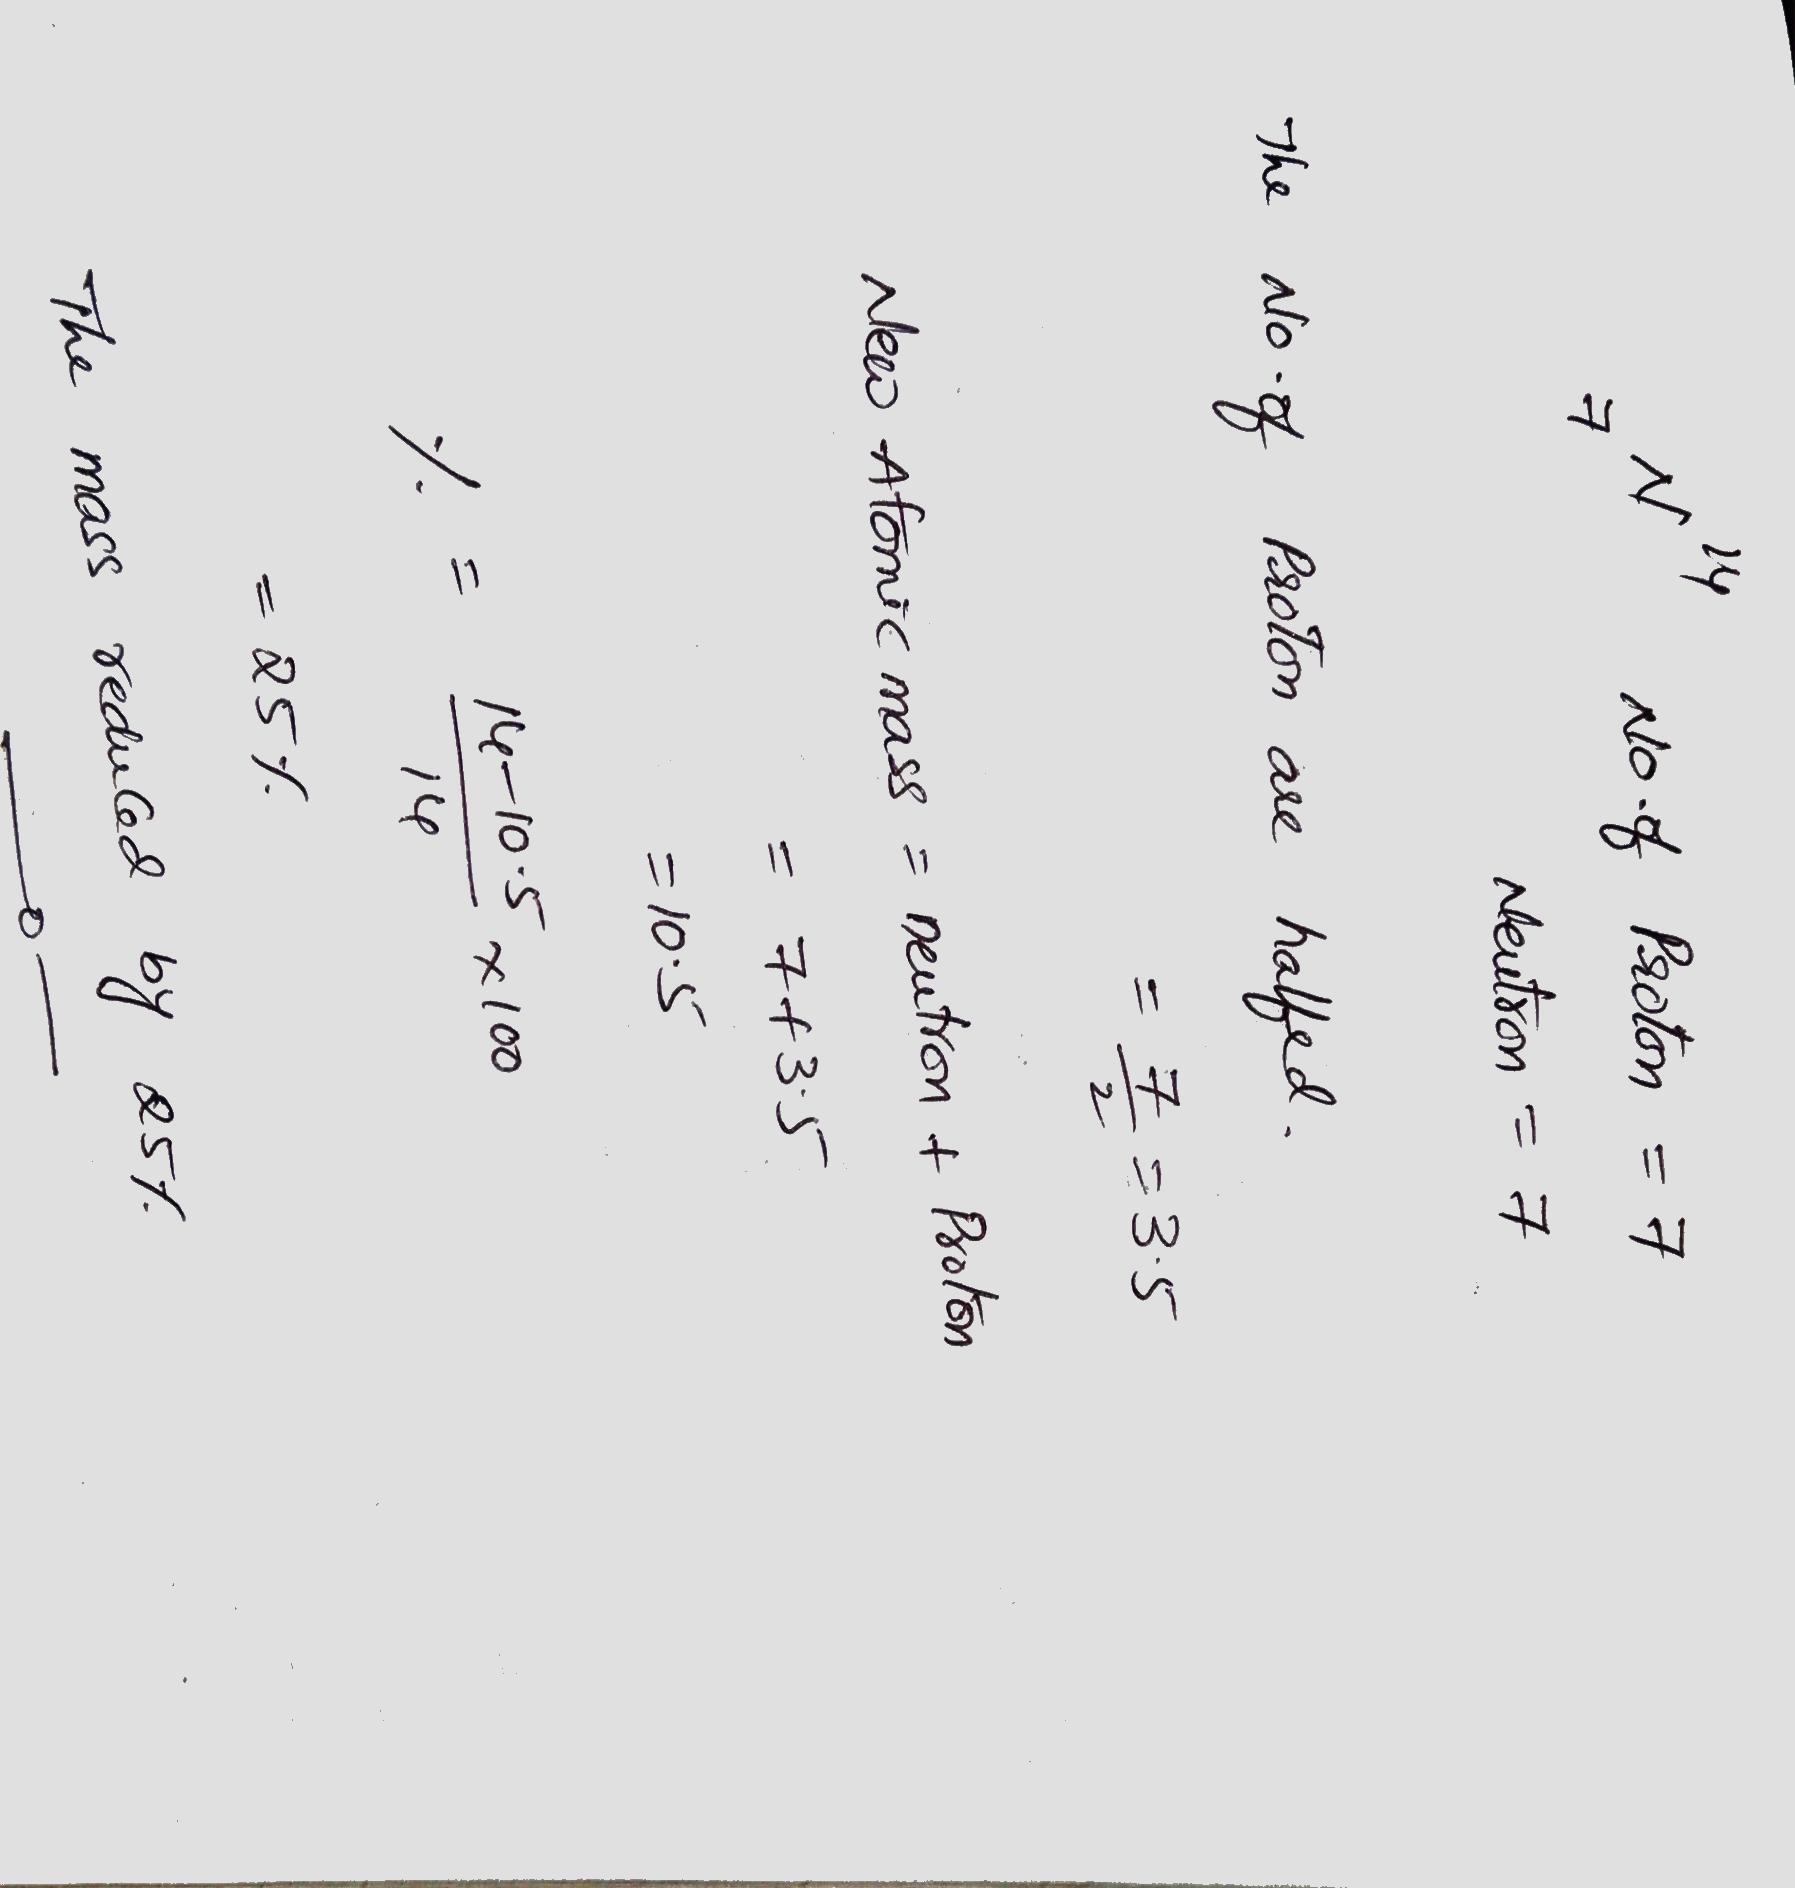 7 N 14 No. of Proton = 7
Neutron = 7
The No. of Proton are halfed.
= 7/2 = 3.5
New Atomic mass = neutron + Proton
= 7 + 3.5
= 10.5
% = 14-10.5/14 × 100
= 25%
The mass reduced by 25%